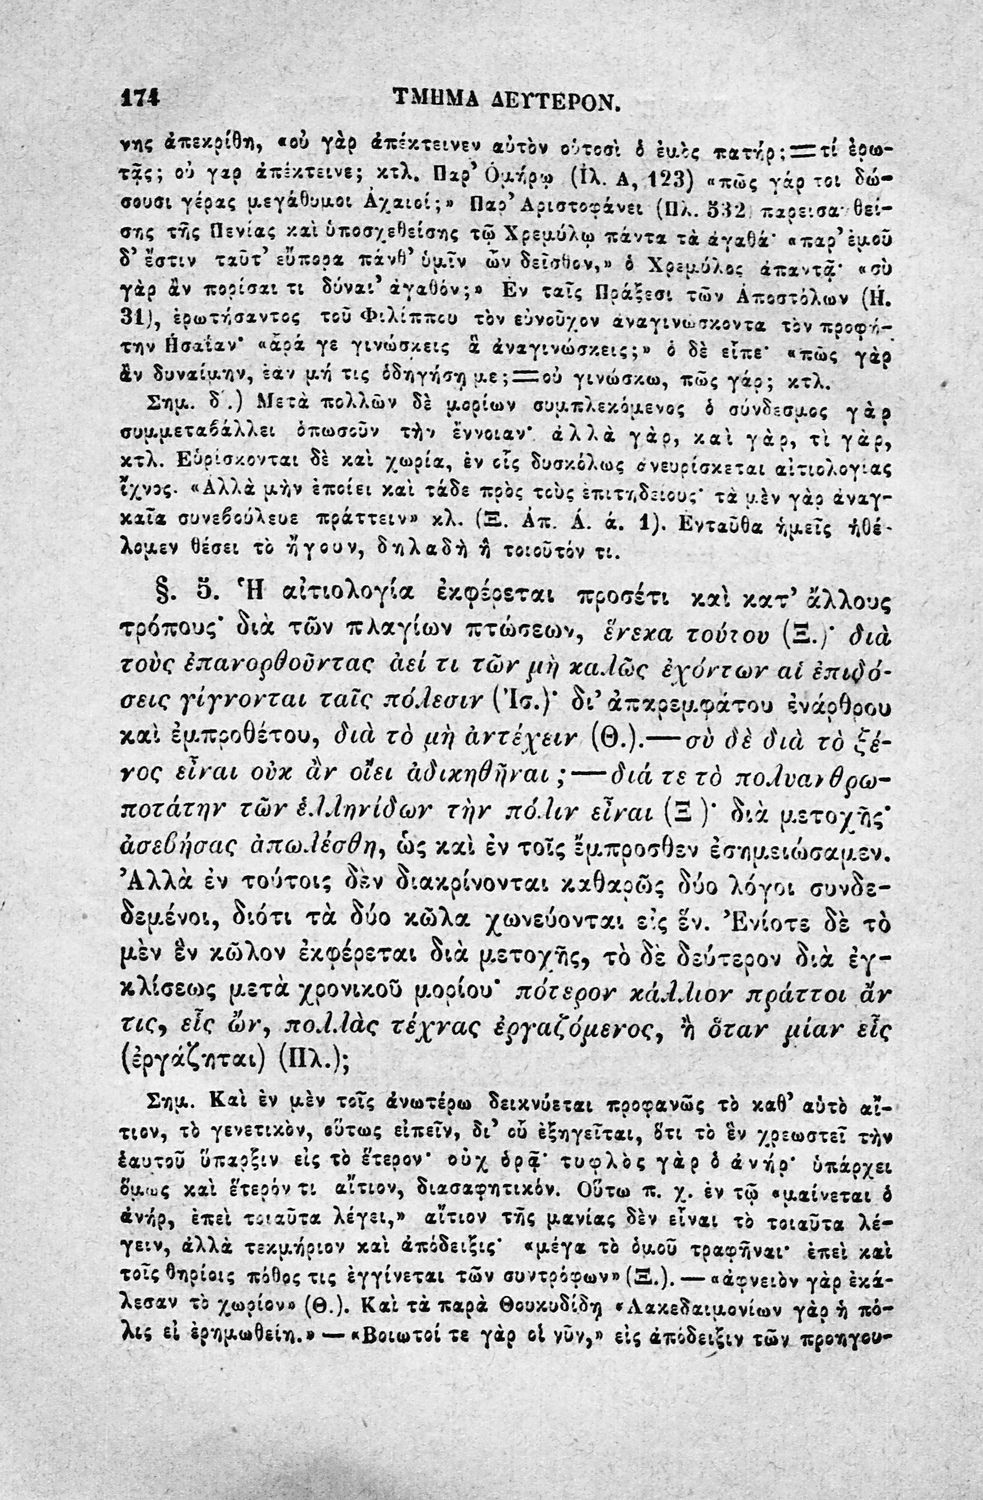 174 ΤΜΗΜΑ ΔΕΥΤΕΡΟΝ.
νης ἀπεκρίθη, «οὐ γὰρ ἀπέκτεινεν αὐτὸν οὑτοσὶ ὁ ἐμὸς πατήρ;=τί ἐρω-
τᾷς; οὐ γαρ ἀπέκτεινε; κτλ. Παρ' Ὁμήρῳ (Ἰλ. Α, 123) «πῶς γάρ τοι δώ-
σουσι γέρας μεγάθυμοι Ἀχαιοί;» Παρ' Ἀριστοφάνει (Πλ. 532) παρεισαχθεί-
σης τῆς Πενίας καὶ ὑποσχεθείσης τῷ Χρεμύλῳ πάντα τὰ ἀγαθά· «παρ' ἐμοῦ
δ' ἔστιν ταῦτ' εὔπορα πάνθ' ὑμῖν ὧν δεῖσθον,» ὁ Χρεμύλος ἀπαντᾷ· «σὺ
γὰρ ἂν πορίσαι τι δύναι' ἀγαθόν;» Ἐν ταῖς Πράξεσι τῶν Ἀποστόλων (Η.
31), ἐρωτήσαντος τοῦ Φιλίππου τὸν εὐνοῦχον ἀναγινώσκοντα τὸν προφή-
την Ἡσαΐαν· «ἆρά γε γινώσκεις ἃ ἀναγινώσκεις;» ὁ δὲ εἶπε· «πῶς γὰρ
ἂν δυναίμην, ἐὰν μή τις ὁδηγήσῃ με;=οὐ γινώσκω, πῶς γάρ; κτλ.
Σημ. δ΄.) Μετὰ πολλῶν δὲ μορίων συμπλεκόμενος ὁ σύνδεσμος γὰρ
συμμεταβάλλει ὁπωσοῦν τὴν ἔννοιαν· ἀλλὰ γὰρ, καὶ γὰρ, τὶ γὰρ,
κτλ. Εὑρίσκονται δὲ καὶ χωρία, ἐν οἷς δυσκόλως ἀνευρίσκεται αἰτιολογίας
ἴχνος. «Ἀλλὰ μὴν ἐποίει καὶ τάδε πρὸς τοὺς ἐπιτηδείους· τὰ μὲν γὰρ ἀναγ-
καῖα συνεβούλευε πράττειν» κλ. (Ξ. Ἀπ. Ά. ά. 1). Ἐνταῦθα ἡμεῖς ἠθέ-
λομεν θέσει τὸ ἤγουν, δηλαδὴ ἢ τοιοῦτόν τι.
§. 5. Ἡ αἰτιολογία ἐκφέρεται προσέτι καὶ κατ' ἄλλους
τρόπους· διὰ τῶν πλαγίων πτώσεων, ἕνεκα τούτου (Ξ.)· διὰ
τοὺς ἐπανορθοῦντας ἀεί τι τῶν μὴ καλῶς ἐχόντων αἱ ἐπιδό-
σεις γίγνονται ταῖς πόλεσιν (Ἰσ.)· δι' ἀπαρεμφάτου ἐνάρθρου
καὶ ἐμπροθέτου, διὰ τὸ μὴ ἀντέχειν (Θ.).—σὺ δὲ διὰ τὸ ξέ-
νος εἶναι οὐκ ἂν οἴει ἀδικηθῆναι;—διά τε τὸ πολυανθρω-
ποτάτην τῶν ἑλληνίδων τὴν πόλιν εἶναι (Ξ)· διὰ μετοχῆς·
ἀσεβήσας ἀπωλέσθη, ὡς καὶ ἐν τοῖς ἔμπροσθεν ἐσημειώσαμεν.
Ἀλλὰ ἐν τούτοις δὲν διακρίνονται καθαρῶς δύο λόγοι συνδε-
δεμένοι, διότι τὰ δύο κῶλα χωνεύονται εἰς ἕν. Ἐνίοτε δὲ τὸ
μὲν ἓν κῶλον ἐκφέρεται διὰ μετοχῆς, τὸ δὲ δεύτερον διὰ ἐγ-
κλίσεως μετὰ χρονικοῦ μορίου· πότερον κάλλιον πράττοι ἄν
τις, εἷς ὤν, πολλὰς τέχνας ἐργαζόμενος, ἢ ὅταν μίαν εἷς
(ἐργάζηται) (Πλ.);
Σημ. Καὶ ἐν μὲν τοῖς ἀνωτέρω δεικνύεται προφανῶς τὸ καθ' αὑτὸ αἴ-
τιον, τὸ γενετικὸν, οὕτως εἰπεῖν, δι' οὗ ἐξηγεῖται, ὅτι τὸ ἓν χρεωστεῖ τὴν
ἑαυτοῦ ὕπαρξιν εἰς τὸ ἕτερον· οὐχ ὁρᾷ· τυφλὸς γὰρ ὁ ἀνήρ· ὑπάρχει
ὅμως καὶ ἕτερόν τι αἴτιον, διασαφητικόν. Οὕτω π. χ. ἐν τῷ «μαίνεται ὁ
ἀνήρ, ἐπεὶ τοιαῦτα λέγει,» αἴτιον τῆς μανίας δὲν εἶναι τὸ τοιαῦτα λέ-
γειν, ἀλλὰ τεκμήριον καὶ ἀπόδειξις· «μέγα τὸ ὁμοῦ τραφῆναι· ἐπεὶ καὶ
τοῖς θηρίοις πόθος τις ἐγγίνεται τῶν συντρόφων» (Ξ.).—«ἀφνειὸν γὰρ ἐκά-
λεσαν τὸ χωρίον» (Θ.). Καὶ τὰ παρὰ Θουκυδίδῃ «Λακεδαιμονίων γὰρ ἡ πό-
λις εἰ ἐρημωθείη.»—«Βοιωτοί τε γὰρ οἱ νῦν,» εἰς ἀπόδειξιν τῶν προηγου-